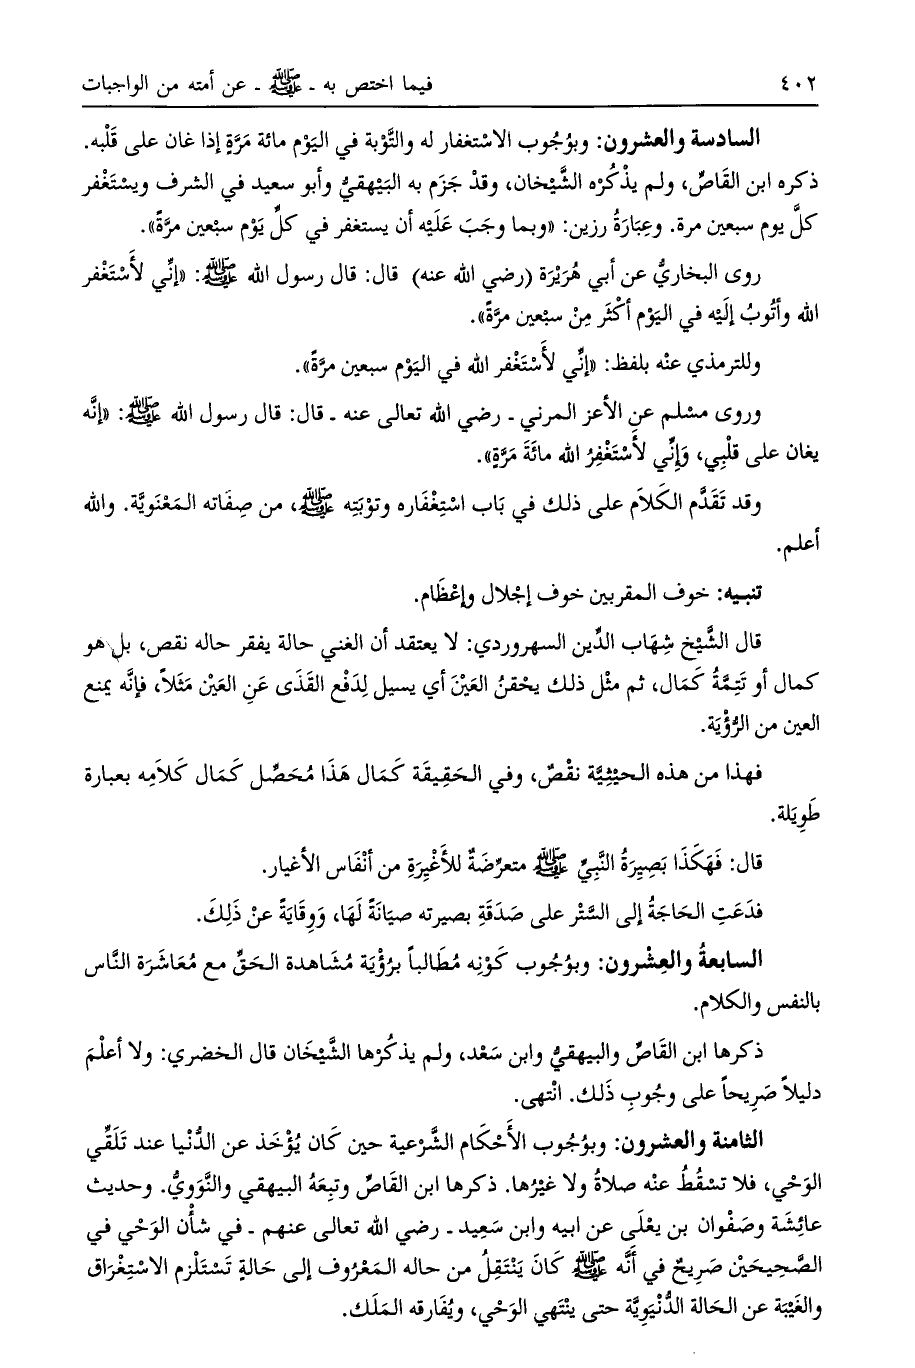 ٤٠٢ فيما اختص به ـ ﷺ ـ عن أمته من الواجبات
السادسة والعشرون: وبوُجوب الاسْتغفار له والتَّوْبة في اليَوْم مائة مَرَّةٍ إذا غان على قَلْبه.
ذكره ابن القَاصّ، ولم يذْكُرْه الشَّيْخان، وقدْ جَزَم به البَيْهقيُّ وأبو سعيد في الشرف ويسْتَغْفر
كلَّ يوم سبعين مرة. وعِبَارَةُ رزين: «وبما وجَبَ عَلَيْه أن يستغفر في كلِّ يَوْم سبْعين مرَّةً».
روى البخاريُّ عن أبي هُرَيْرَة (رضي الله عنه) قال: قال رسول الله ﷺ: «إنِّي لأَسْتَغْفر
الله وأتُوبُ إلَيْه في اليَوْم أكْثَر مِنْ سبْعين مرَّةً».
وللترمذي عنْه بلفظ: «إنِّي لأَسْتَغْفر الله في اليَوْم سبعين مرَّةً».
وروى مسْلم عنِ الأعز المرني ـ رضي الله تعالى عنه ـ قال: قال رسول الله ﷺ: «إنَّه
يغان على قلْبِي، وَإنِّي لأسْتَغْفِرُ الله مائَةَ مَرَّةٍ».
وقد تَقَدَّم الكَلاَم على ذلك في بَاب اسْتِغْفَاره وتوْبَتِه ﷺ، من صِفَاته المَعْنَويَّة. والله
أعلم.
تنبيه: خوف المقربين خوف إجْلال وإعْظَام.
قال الشَّيْخ شِهَاب الدِّين السهروردي: لا يعتقد أن الغني حالة يفقر حاله نقص، بل هو
كمال أو تَتِمَّةُ كَمَال، ثم مثْل ذلك يحْقنُ العَيْنَ أي يسيل لِدَفْع القَذَى عَنِ العَيْن مَثَلاً، فإنَّه يمنع
العين من الرُّؤْيَة.
فهذا من هذه الحيْثِيَّة نقْصٌ، وفي الحَقِيقَة كَمَال هَذَا مُحَصِّل كَمَال كَلاَمِه بعبارة
طَوِيَلة.
قال: فَهَكَذَا بَصِيرَةُ النَّبِيِّ ﷺ متعرِّضَةٌ للأَغْيِرَةِ من أنْفَاس الأغيار.
فدَعَتِ الحَاجَةُ إلى السَّتْر على صَدَقَةِ بصيرته صيَانَةً لَهَا، وَوِقَايَةً عنْ ذَلِكَ.
السابعةُ والعِشْرون: وبوُجوب كَوْنِه مُطَالباً برُؤْيَة مُشَاهدة الحَقِّ مع مُعَاشَرَة النَّاس
بالنفس والكلام.
ذكرها ابن القَاصِّ والبيهقيُّ وابن سَعْد، ولم يذكُرْها الشَّيْخَان قال الخضري: ولا أعلْمَ
دليلاً صَرِيحاً على وجُوبِ ذَلك. انْتهى.
الثامنة والعشرون: وبوُجُوب الأَحْكَام الشَّرْعية حين كَان يُؤْخَذ عن الدُّنْيا عند تَلَقِّي
الوَحْي، فلا تسْقُطُ عنْه صلاةُ ولا غيْرُها. ذكرها ابن القَاصِّ وتبِعَهُ البيهقي والنَّوَويُّ. وحديث
عائِشَة وصَفْوان بن يعْلَى عن ابيه وابن سَعِيد ـ رضي الله تعالى عنهم ـ في شأْن الوَحْي في
الصَّحِيحَيْن صَرِيحٌ في أنَّه ﷺ كَانَ يَنْتَقِلُ من حاله المَعْرُوف إلى حَالةٍ تَسْتَلْزم الاسْتِغْرَاق
والغَيْبَة عن الحَالة الدُّنْيَوِيَّة حتى ينْتَهي الوَحْي، ويُفَارقه المَلَك.